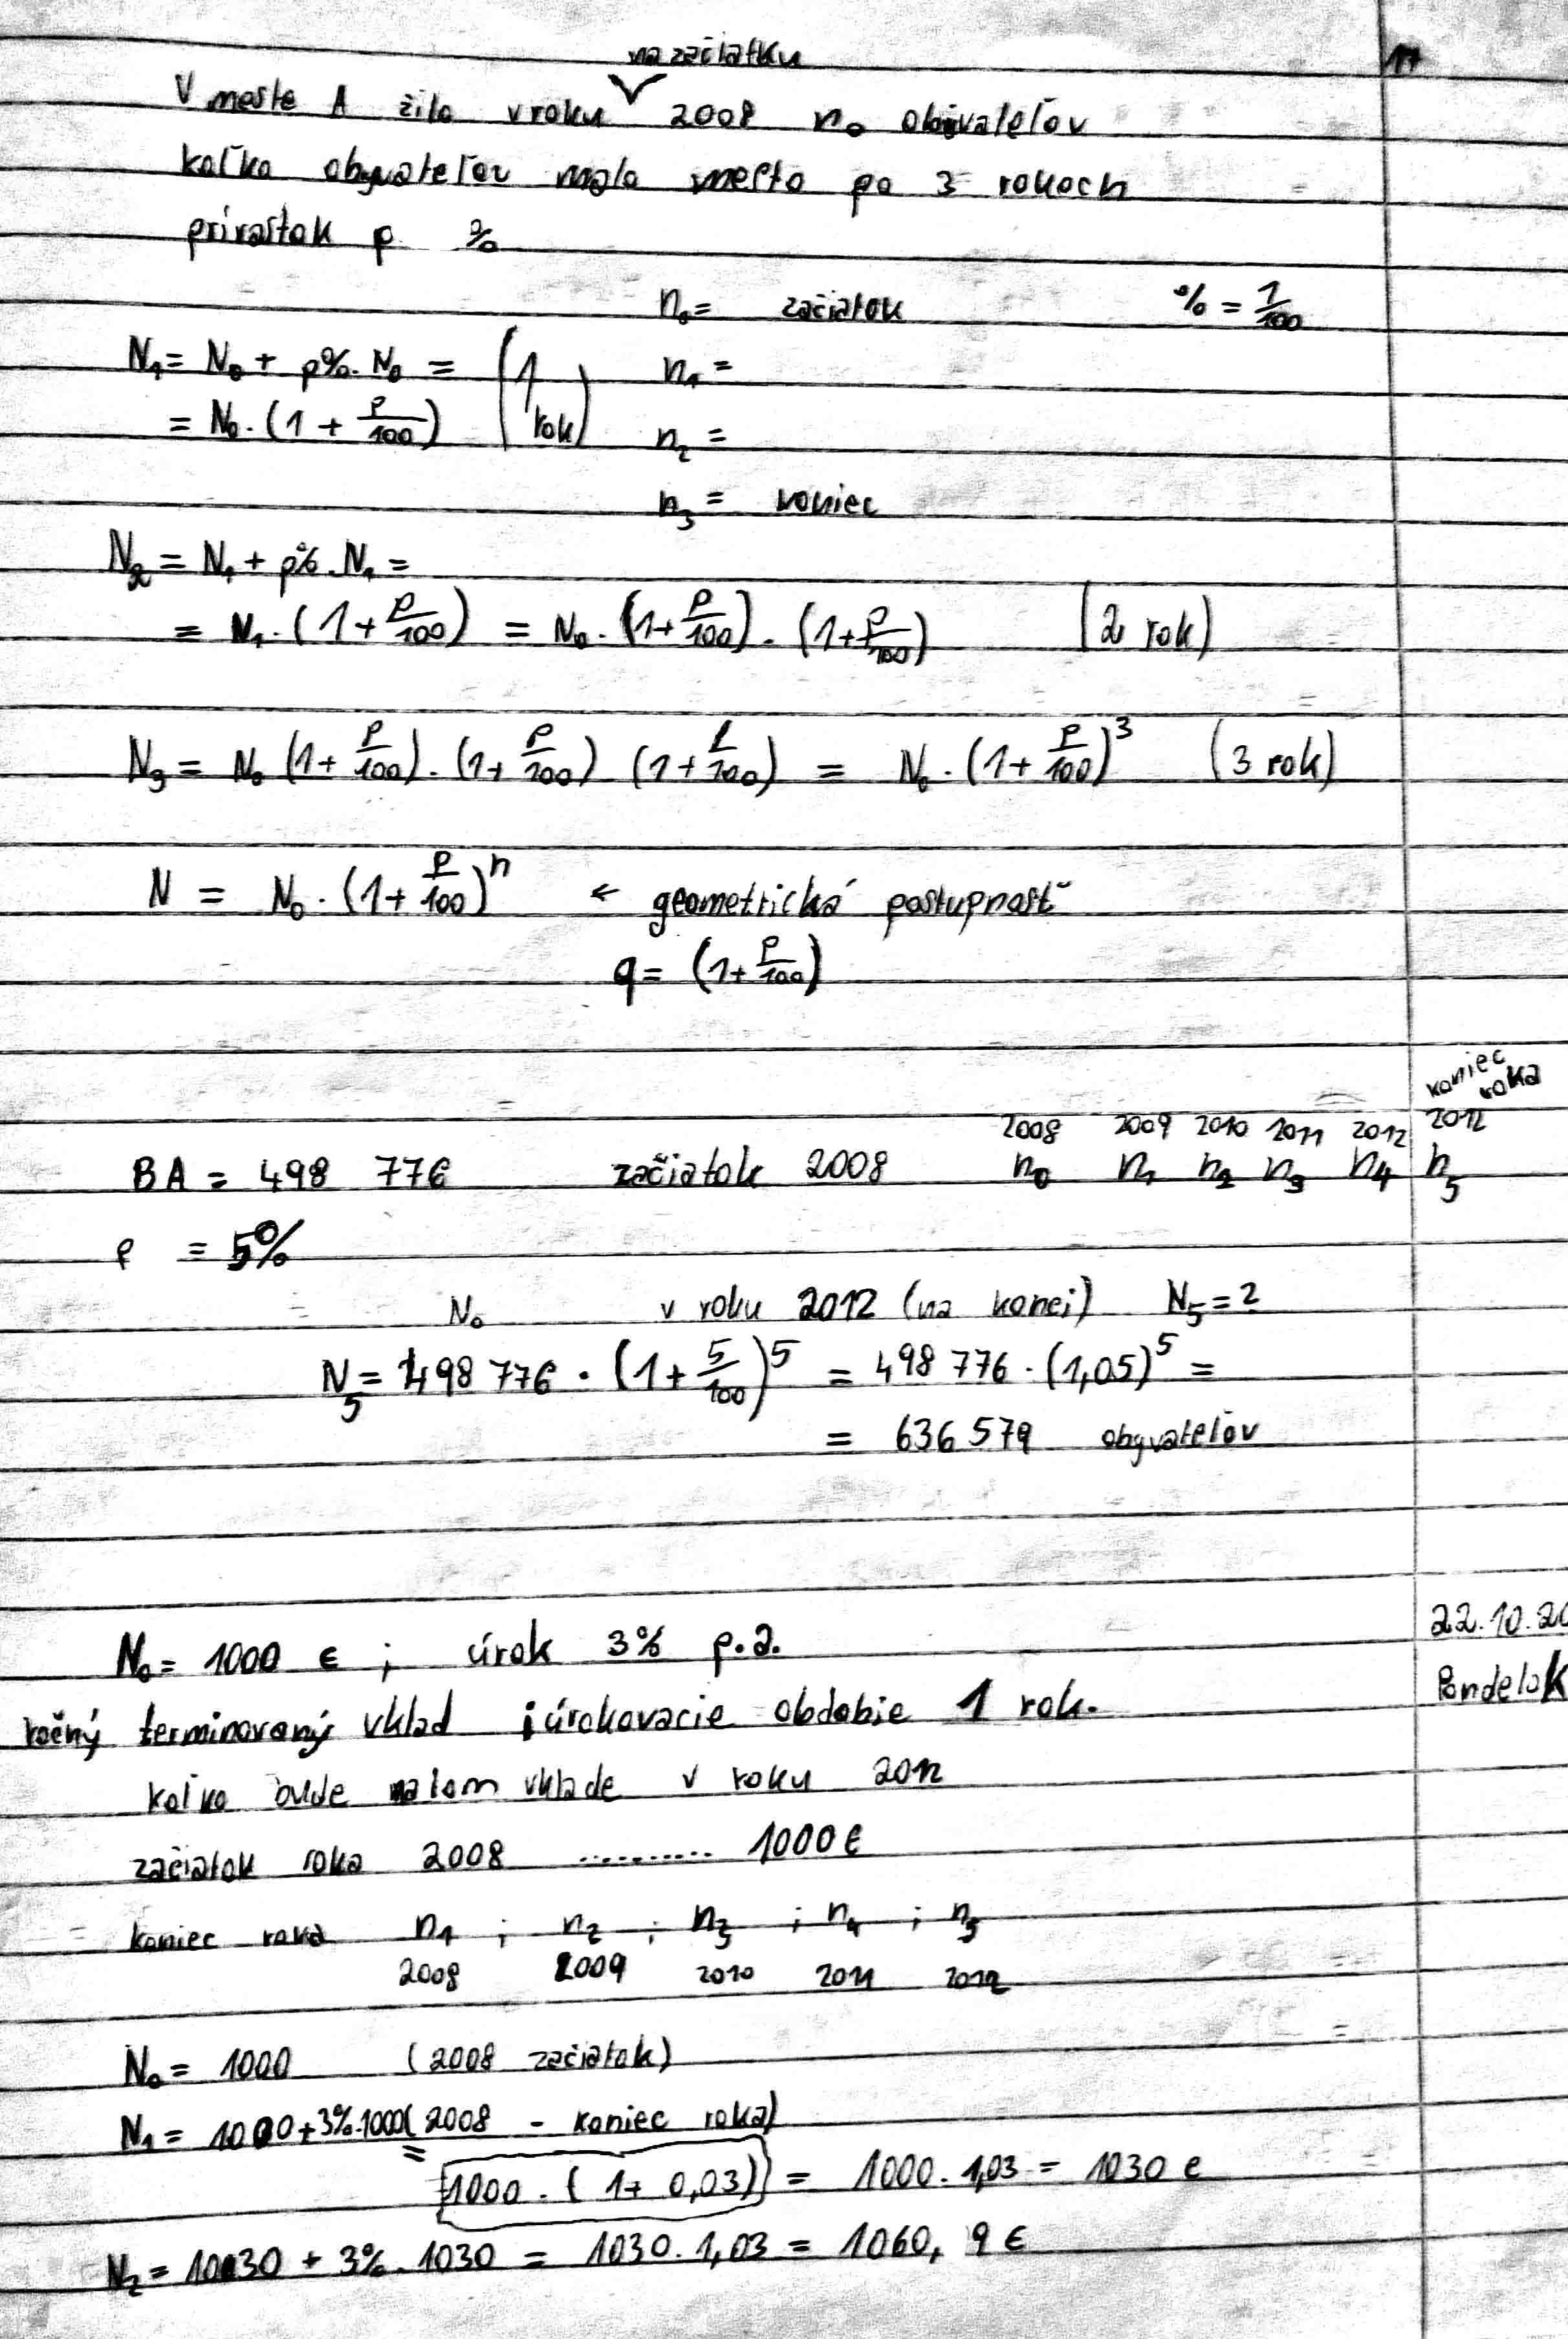 na začiatku
V meste A žilo v roku 2008 n₀ obyvateľov
koľko obyvateľov malo mesto po 3 rokoch
prírastok p %
n₀ = začiatok % = 1/100
N₁ = N₀ + p%. N₀ = (1 rok) n₁ =
= N₀ . (1 + p/100) n₂ =
n₃ = koniec
N₂ = N₁ + p%. N₁ =
= N₁ . (1 + p/100) = N₀ . (1 + p/100) . (1 + p/100) (2 rok)
N₃ = N₀ (1 + p/100) . (1 + p/100) (1 + p/100) = N₀ . (1 + p/100)³ (3 rok)
N = N₀ . (1 + p/100)ⁿ ← geometrická postupnosť
q = (1 + p/100)
koniec roka
2008 2009 2010 2011 2012 2012
BA = 498 776 začiatok 2008 n₀ n₁ n₂ n₃ n₄ n₅
p = 5%
N₀ v roku 2012 (na konci) N₅ = ?
N₅ = 498 776 . (1 + 5/100)⁵ = 498 776 . (1,05)⁵ =
= 636 579 obyvateľov
22.10.20
N₀ = 1000 € ; úrok 3% p.a.
Pondelok
ročný terminovaný vklad ; úrokovacie obdobie 1 rok.
koľko bude na tom vklade v roku 2012
začiatok roka 2008 .......... 1000 €
koniec roka n₁ ; n₂ ; n₃ ; n₄ ; n₅
2008 2009 2010 2011 2012
N₀ = 1000 (2008 začiatok)
N₁ = 1000 + 3%.1000 (2008 - koniec roka)
= 1000 . (1 + 0,03) = 1000 . 1,03 = 1030 €
N₂ = 1030 + 3% . 1030 = 1030 . 1,03 = 1060,9 €